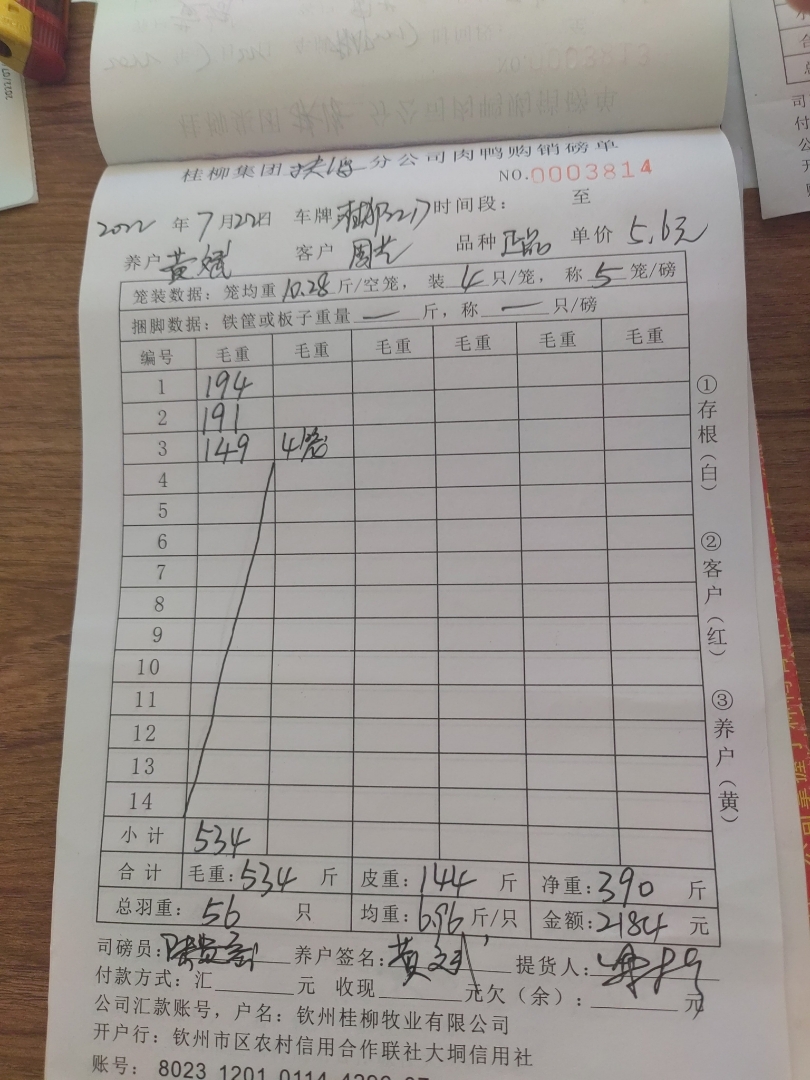 桂柳集团 分公司肉鸭购销磅单
NO.0003814
2022年7月22日 车牌 3217 时间段： 至
养户 黄斌 客户 周 品种 正品 单价 5.6元
笼装数据：笼均重10.28斤/空笼，装4只/笼，称5笼/磅
捆脚数据：铁筐或板子重量—斤，称—只/磅
编号 毛重 毛重 毛重 毛重 毛重 毛重
1 194
2 191
3 149 4笼
4
5
6
7
8
9
10
11
12
13
14
小计 534
合计 毛重：534斤 皮重：144斤 净重：390斤
总羽重：56只 均重：6.96斤/只 金额：2184元
司磅员： 养户签名：黄 提货人：
付款方式：汇 元 收现 元欠（余）： 元
公司汇款账号，户名：钦州桂柳牧业有限公司
开户行：钦州市区农村信用合作联社大垌信用社
账号：8023 1201 0114
①存根（白）
②客户（红）
③养户（黄）